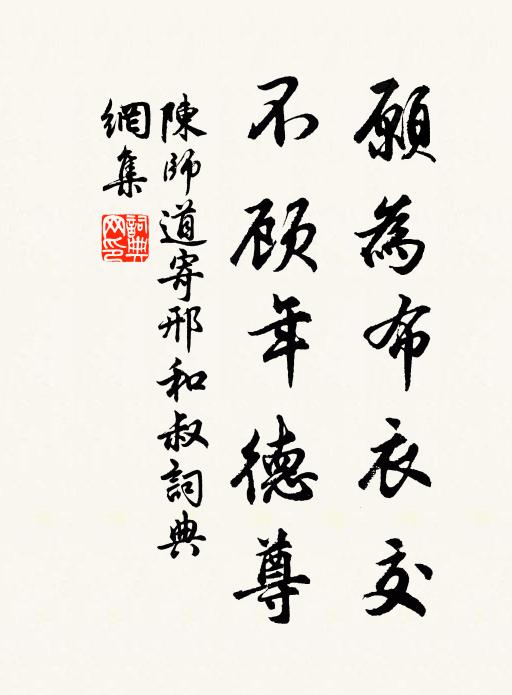 願為布衣交
不顾年德尊
陳師道寄邢和叔詞典
網集
詞典网印